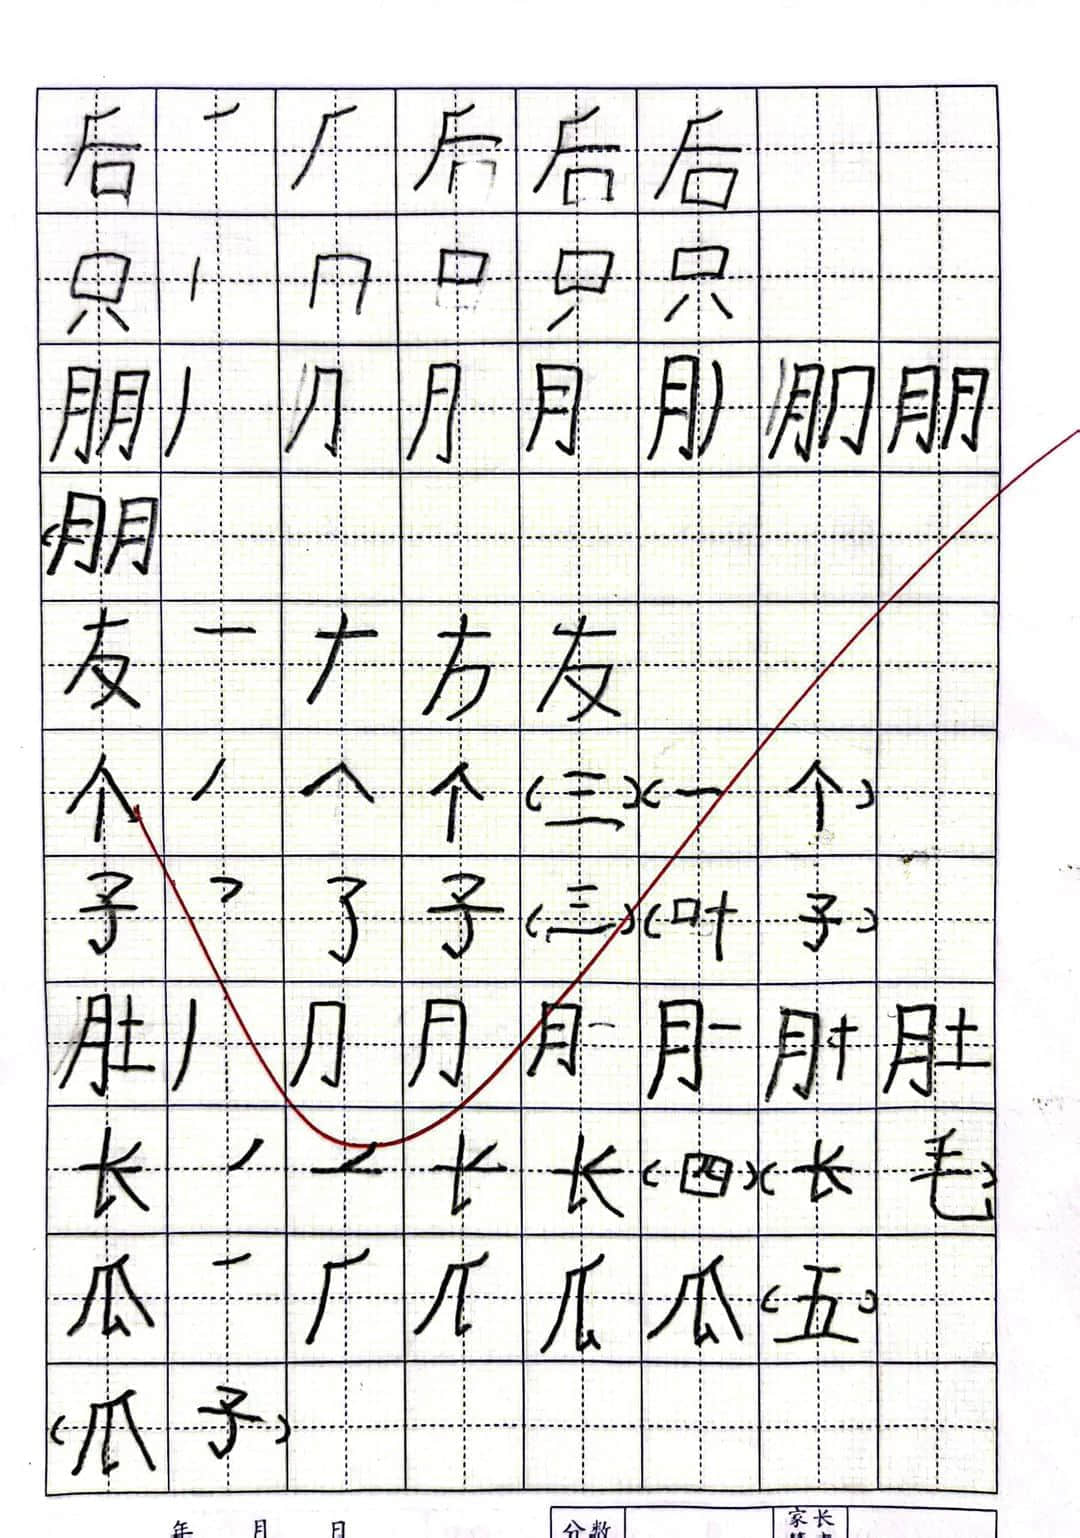 后 ㇒ 厂 后 后 后
只 丨 冂 口 只 只
朋 丿 ⺆ 月 月 朋 朋
朋
友 一 ナ 方 友
个 丿 人 个 (三) (一个)
子 乛 了 子 (三) (叶子)
肚 丿 ⺆ 月 月 肚
长 ㇒ 长 长 (四) (长毛)
瓜 ㇒ 厂 瓜 瓜 (五)
(瓜子)
年 月 日 分数 家长